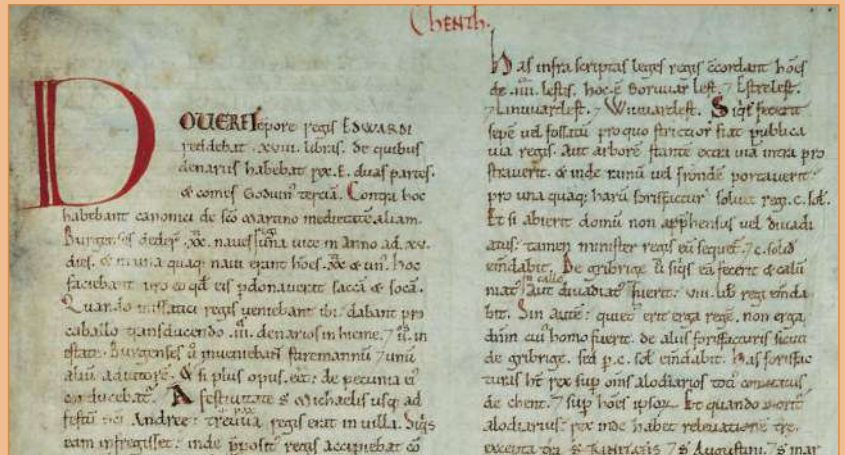 Chenth.
DOVERE tēpore regis EDWARDI
reddebat .xviii. libras. de quibus
denariis habebat rex .E. duas partes.
& comes Goduin⁹ terciā. Contra hoc
habebant canonici de sc̄o Martino medietatē aliam.
Burgenses deder̄ .xx. naues
una uice in anno ad .xv.
dies. & in una quaq; naui erant hōes .xx. & un⁹. hoc
faciebant
eis pdonauerat saccā & socā.
Quando missatici regis ueniebant ibi: dabant pro
caballo transducendo .iii. denarios in hieme. ⁊ .ii. in
estate. Burgenses ū inueniebant stiremannū ⁊ unū
aliū adiutorē. & si plus opus eēt: de pecunia ei⁹
conducebat̄. A festiuitate S Michaelis usq; ad
festū sc̄i Andree: treuua regis erat in uilla. Siq̄s
eam infregisset: inde p̄posit⁹ regis accipiebat cō
Has infra scriptas leges regis c̄cordant hōes
de .iiii. lestis. hoc ē Boruuar lest. ⁊ Estrelest.
⁊ Linuuarlest. ⁊ Wiuuarlest. Siq̄s fecerit
sepē uel fossatū pro quo strictior fiat publica
uia regis. aut arborē stantē extra uiā intra pro
strauerit. & inde ramū uel frondē portauerit:
pro una quaq; harū forisfacturar̄ soluet regi .c. sol.
Et si abierit domū non app̄hensus uel diuadi
atus: tamen minister regis eū sequet̄. ⁊ .c. solid
emdabit. De gribrige ū siq̄s eā fecerit & calū
niat⁹ aut diuadiat⁹ fuerit: .viii. lib regi emda
bit. Sin autē: quiet⁹ erit erga regē. non erga
dn̄m cui⁹ homo fuerit. de aliis forisfacturis sicut
de gribrige. sed p .c. sol emdabit. Has forisfac
turas ht̄ rex sup om̄s alodiarios toti⁹ comitatus
de chent. ⁊ sup hōes ipsor̄. Et quando morit̄
alodiarius: rex inde habet releuationē tr̄e.
excepta tr̄a S TRINITATIS ⁊ S Augustini. ⁊ S mar